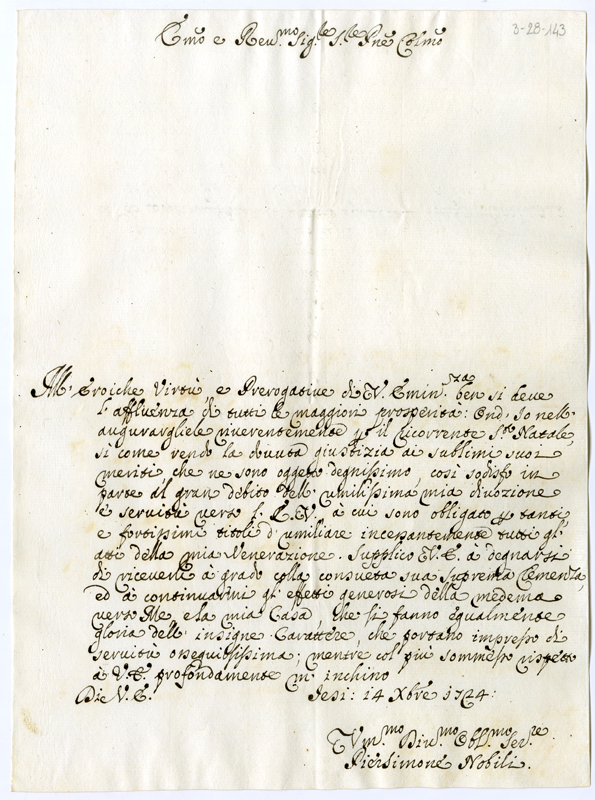 3-28-143
Emo e Reu.mo Sig.re S.re Pne Colmo
All' eroiche Virtù, e Prerogative di V. Emin.za ben si deve
l'affluenza di tutti le maggiori prosperità: Ond' Io nell'
augurargliele riverentemente p il ricorrente S.to Natale,
si come rendo la dovuta giustizia ai sublimi suoi
meriti, che ne sono oggetto degnissimo, così sodisfo in
parte al gran debito dell' umilissima mia divozione
e servitù verso l' E.V. à cui sono obligato p tanti
e fortissimi titoli d' umiliare incessantemente tutti gl'
atti della mia Venerazione. Supplico V.E. a degnarsi
di riceverli à grado colla consueta sua suprema Clemenza,
ed à continuarmi gl' effetti generosi della medema
verso Me, e la mia Casa, che si fanno egualmente
gloria dell' insigne Carattere, che portano impresso di
servitù ossequiosissima; mentre col più sommesso rispetto
à V.E. profondamente m' inchino
Di V.E. Jesi: 14 Xbre 1724:
Um.mo Div.mo Obl.mo Ser.re
Piersimone Nobili.